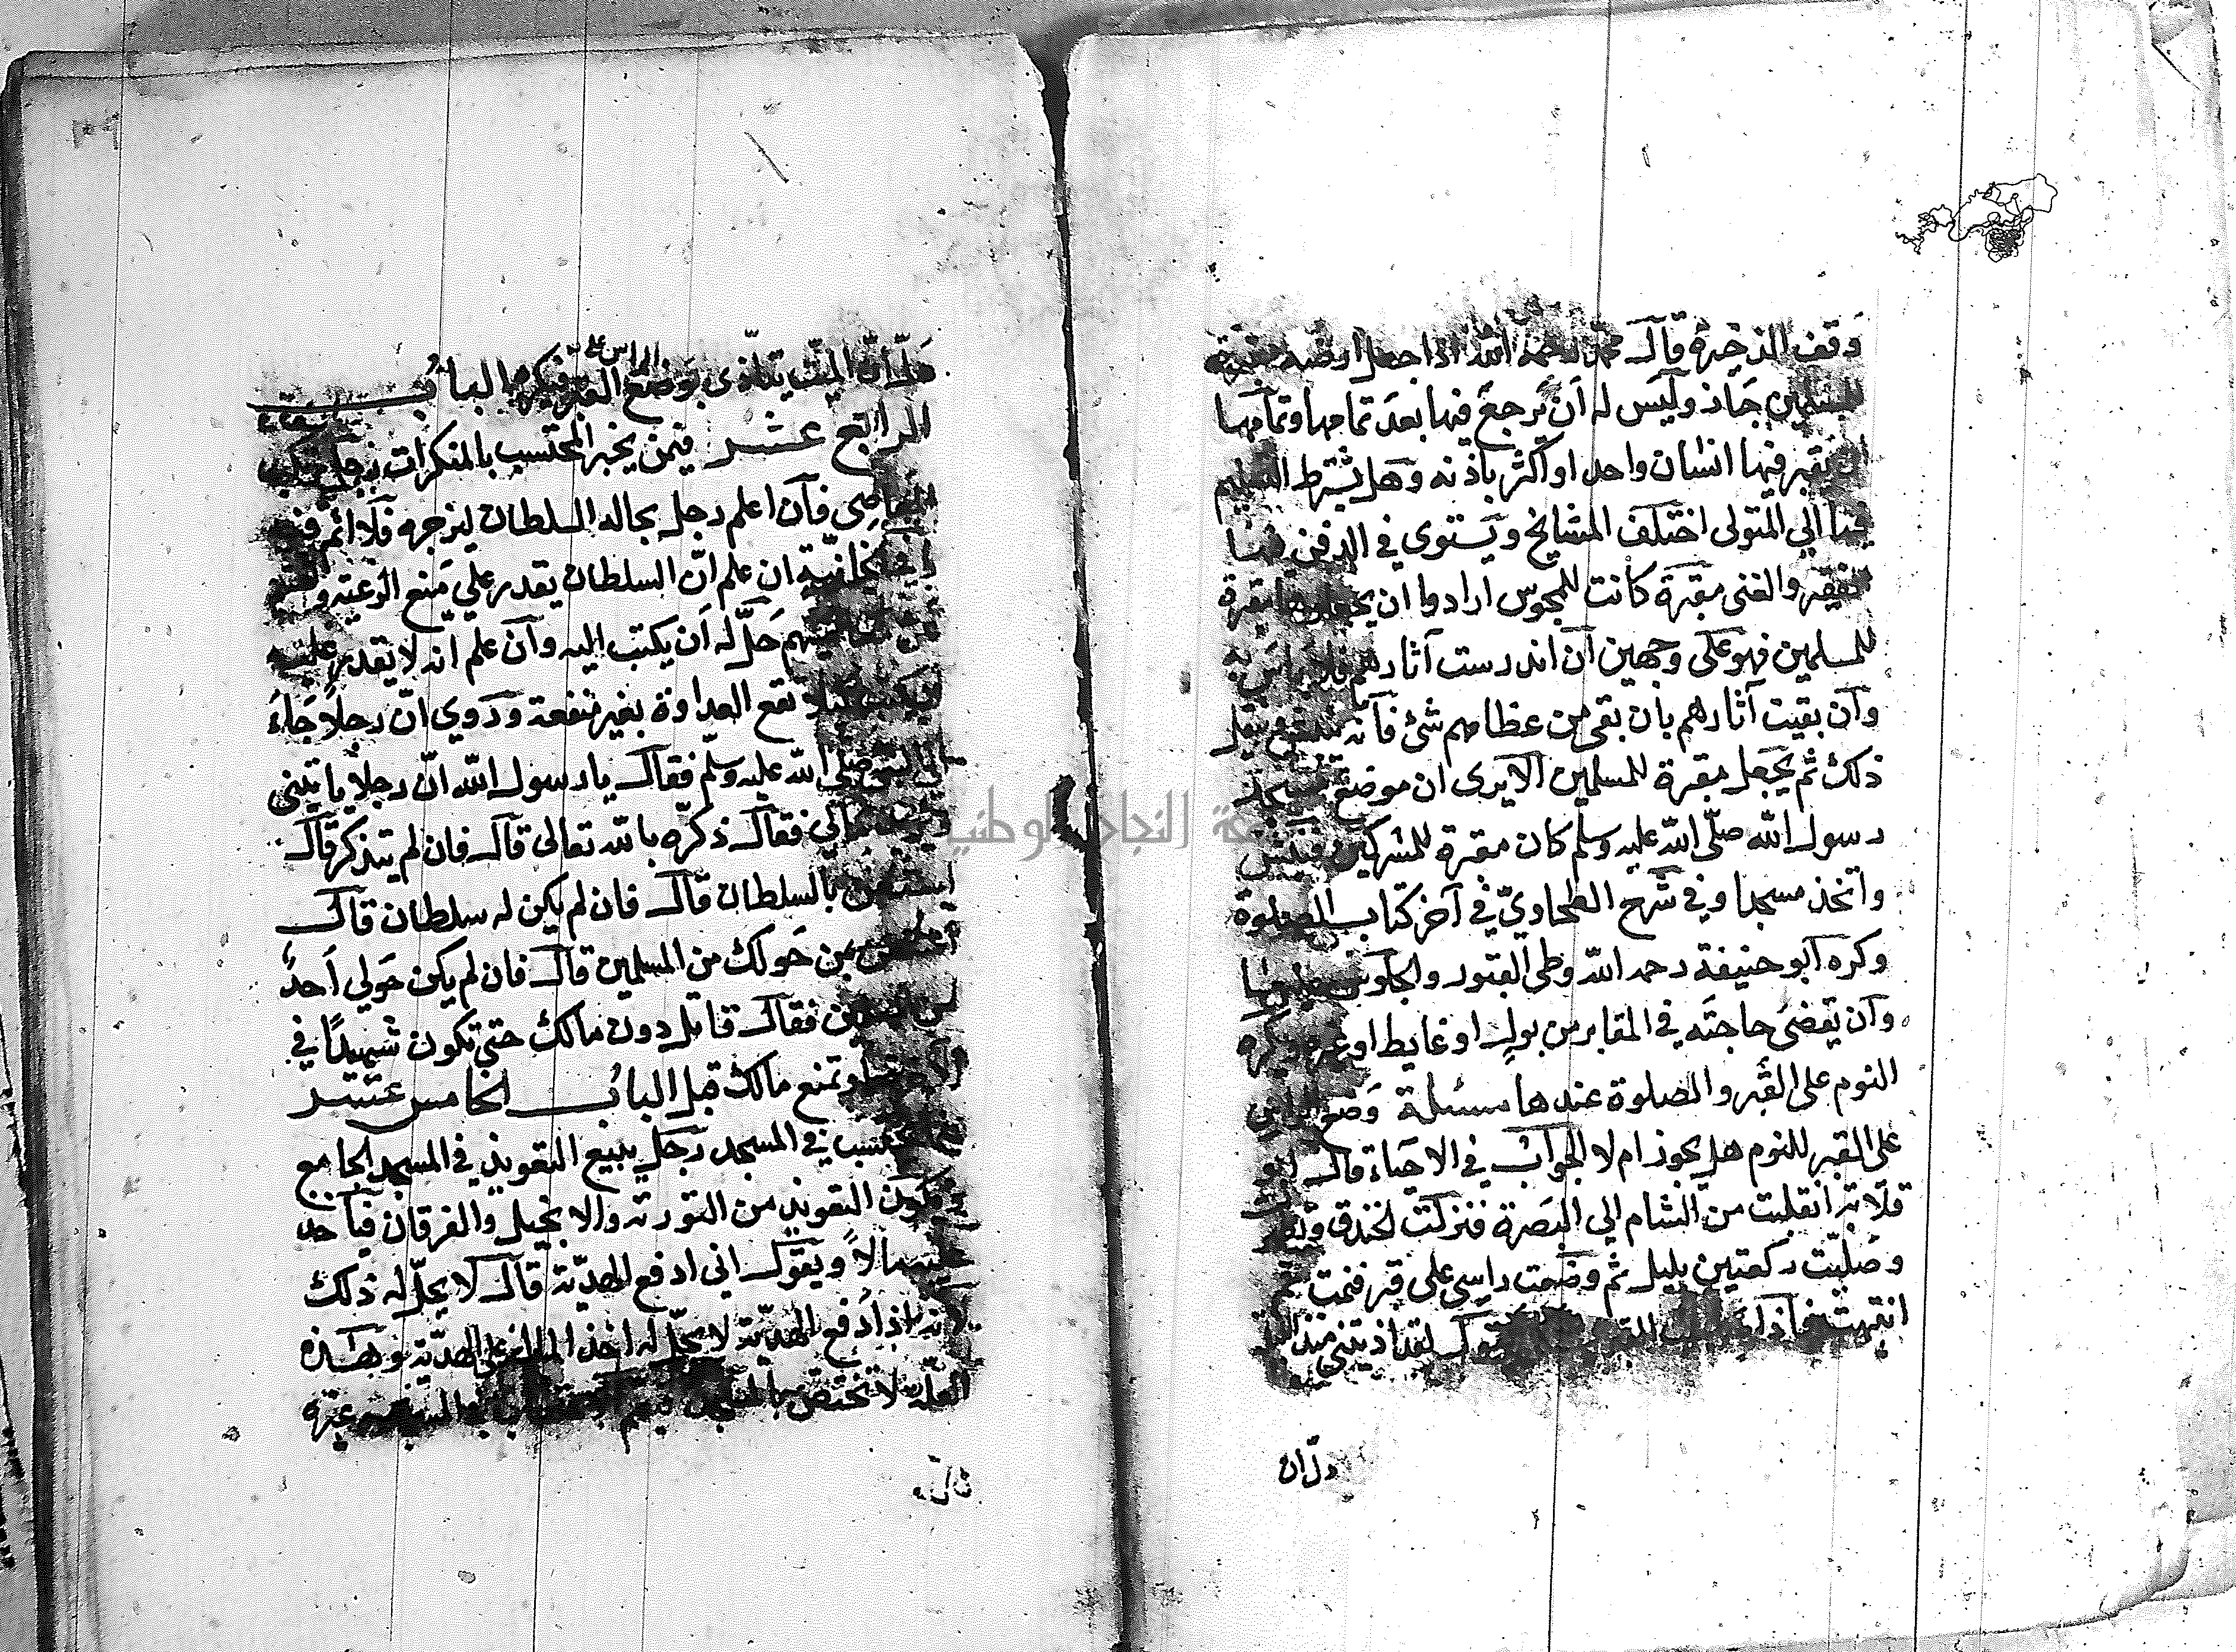 وقف الذخيرة قال محمد رحمه الله اذا جعل ارضه مقبرة
للمسلمين جاز وليس له ان يرجع فيها بعد تمامها وتمامها
ان يقبر فيها انسان واحد او اكثر باذنه وهل يشترط التسليم
الى المتولى اختلف المشايخ ويستوى في الدفن
الفقير والغنى مقبرة كانت للمجوس ارادوا ان يجعلوها مقبرة
للمسلمين فهو على وجهين ان اندرست آثارهم فلا باس به
وان بقيت آثارهم بان بقى من عظامهم شئ فانه
ذلك ثم يجعل مقبرة للمسلمين الا يرى ان موضع مسجد
رسول الله صلى الله عليه وسلم كان مقبرة للمشركين فنبش
واتخذ مسجدا وفي شرح الطحاوي في آخر كتاب الصلوة
وكره ابو حنيفة رحمه الله وطى القبور والجلوس عليها
وان يقضى حاجته في المقابر من بول او غايط او غيره ويكره
النوم على القبر والصلوة عندها مسئلة وضع الراس
على القبر للنوم هل يجوز ام لا الجواب في الاحياء قال ابو
قلابة انقلبت من الشام الى البصرة فنزلت لخندق
وصليت ركعتين بليل ثم وضعت راسى على قبر فنمت ثم
انتهيت فاذا صاحب القبر يقول لقد اذيتنى منذ الليل
دل ان
دل ان الميت يتاذى بوضع الراس على القبر فيكره الباب
الرابع عشر فيمن يخبر المحتسب بالمنكرات رجل
المعاصى فان اعلم رجل بحاله السلطان ليزجره فلا اثم فيه
الخانية ان علم ان السلطان يقدر على منع الرعية
حل له ان يكتب اليه وان علم انه لا يقدر عليه
لا يكتب كيلا تقع العداوة بغير منفعة وروي ان رجلا جاء
الى النبى صلى الله عليه وسلم فقال يا رسول الله ان رجلا ياتينى
مالي فقال ذكره بالله تعالى قال فان لم يتذكر قال
استعن بالسلطان قال فان لم يكن له سلطان قال
استعن بمن حولك من المسلمين قال فان لم يكن حولي احد
من المسلمين فقال قاتل دون مالك حتى تكون شهيدا في
الآخرة او تمنع مالك قبل الباب الخامس عشر
في المسجد رجل يبيع التعويذ في المسجد الجامع
ويكون التعويذ من التورية والانجيل والفرقان فياخذ
مالا ويقول انى ادفع الهدية قال لا يحل له ذلك
لانه اذا دفع الهدية لا يحل له اخذ المال على الهدية وهذه
العلة لا تختص بالمسجد فيعم